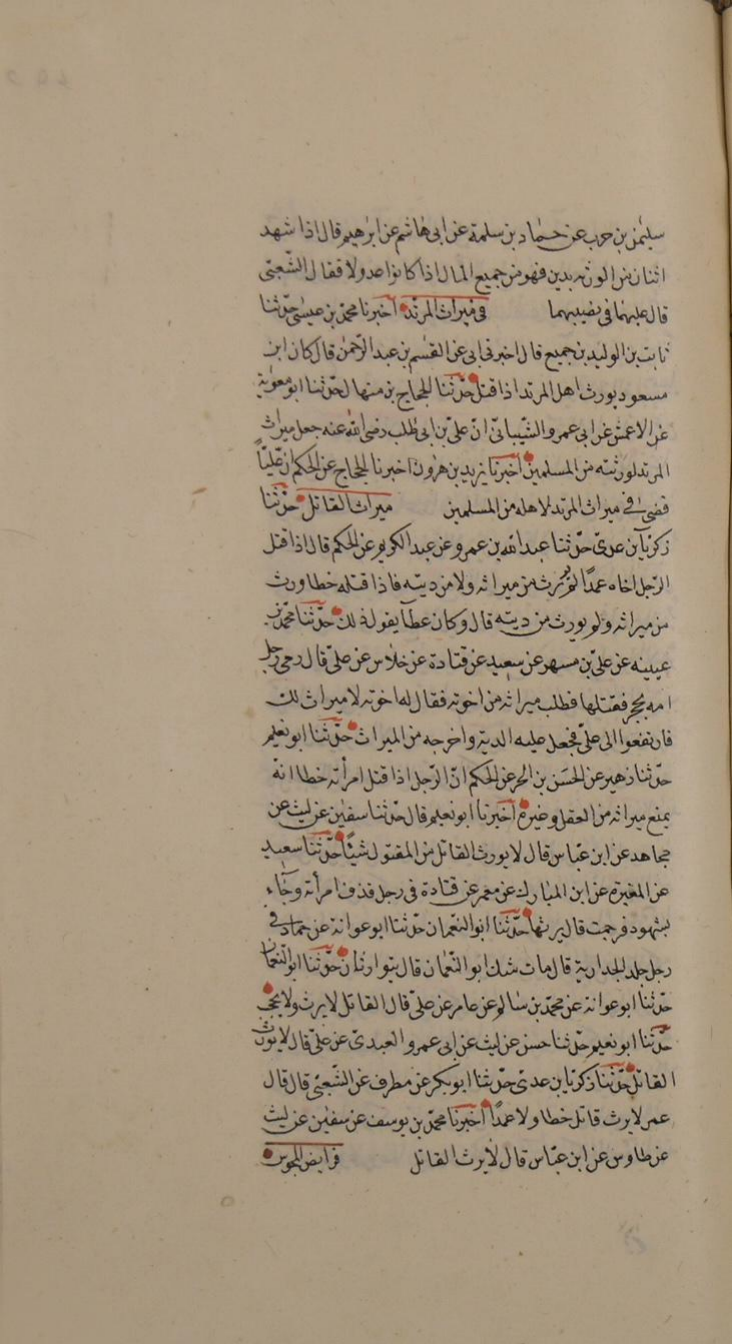 سليمن بن حرب عن حماد بن سلمة عن ابى هاشم عن ابرهيم قال اذا شهد
اثنان من الورثة بدين فهو من جميع المال اذا كانوا عدولا فقال الشعبى
قال عليهما فى نصيبهما في ميراث المرتد اخبرنا محمد بن عيسى حدثنا
ثابت بن الوليد بن جميع قال اخبرنى ابى عن القسم بن عبد الرحمن قال كان ابن
مسعود يورث اهل المرتد اذا قتل حدثنا الحجاج بن منهال حدثنا ابو معوية
عن الاعمش عن ابى عمرو الشيبانى ان على بن ابى طلب رضى الله عنه جعل ميراث
المرتد لورثته من المسلمين اخبرنا يزيد بن هرون اخبرنا الحجاج عن الحكم ان عليا
قضى فى ميراث المرتد لاهله من المسلمين ميراث القاتل حدثنا
زكريا بن عدى حدثنا عبد الله بن عمرو عن عبد الكريم عن الحكم قال اذا قتل
الرجل اخاه عمدا لم يرث من ميراثه ولا من ديته فاذا قتله خطا ورث
من ميراثه ولم يورث من ديته قال وكان عطا يقول ذلك حدثنا محمد بن
عيينه عن على بن مسهر عن سعيد عن قتادة عن خلاس عن على قال رمى رجل
امه بحجر فقتلها فطلب ميراثه من اخوته فقال له اخوته لا ميراث لك
فارتفعوا الى على فجعل عليه الدية واخرجه من الميراث حدثنا ابو نعيم
حدثنا زهير عن الحسن بن الحر عن الحكم ان الرجل اذا قتل امرأته خطا انه
يمنع ميراثه من العقل وغيره اخبرنا ابو نعيم قال حدثنا سفين عن ليث عن
مجاهد عن ابن عباس قال لا يورث القاتل من المقتول شيئا حدثنا سعيد
عن المغيرة عن ابن المبارك عن معمر عن قتادة فى رجل قذف امرأته وجاء
بشهود فرجمت قال يرثها حدثنا ابو النعمان حدثنا ابو عوانة عن حماد فى
رجل جلد الحد ارية قال مات شك ابو النعمان قال يتوارثان حدثنا ابو النعمان
حدثنا ابو عوانة عن محمد بن سالم عن عامر عن على قال القاتل لا يرث ولا يحجب
حدثنا ابو نعيم حدثنا حسن عن ليث عن ابى عمرو العبدى عن على قال لا يورث
القاتل حدثنا زكريا بن عدى حدثنا ابو بكر عن مطرف عن الشعبى قال قال
عمر لا يرث قاتل خطا ولا عمدا اخبرنا محمد بن يوسف عن سفين عن ليث
عن طاوس عن ابن عباس قال لا يرث القاتل فرايض المجوس